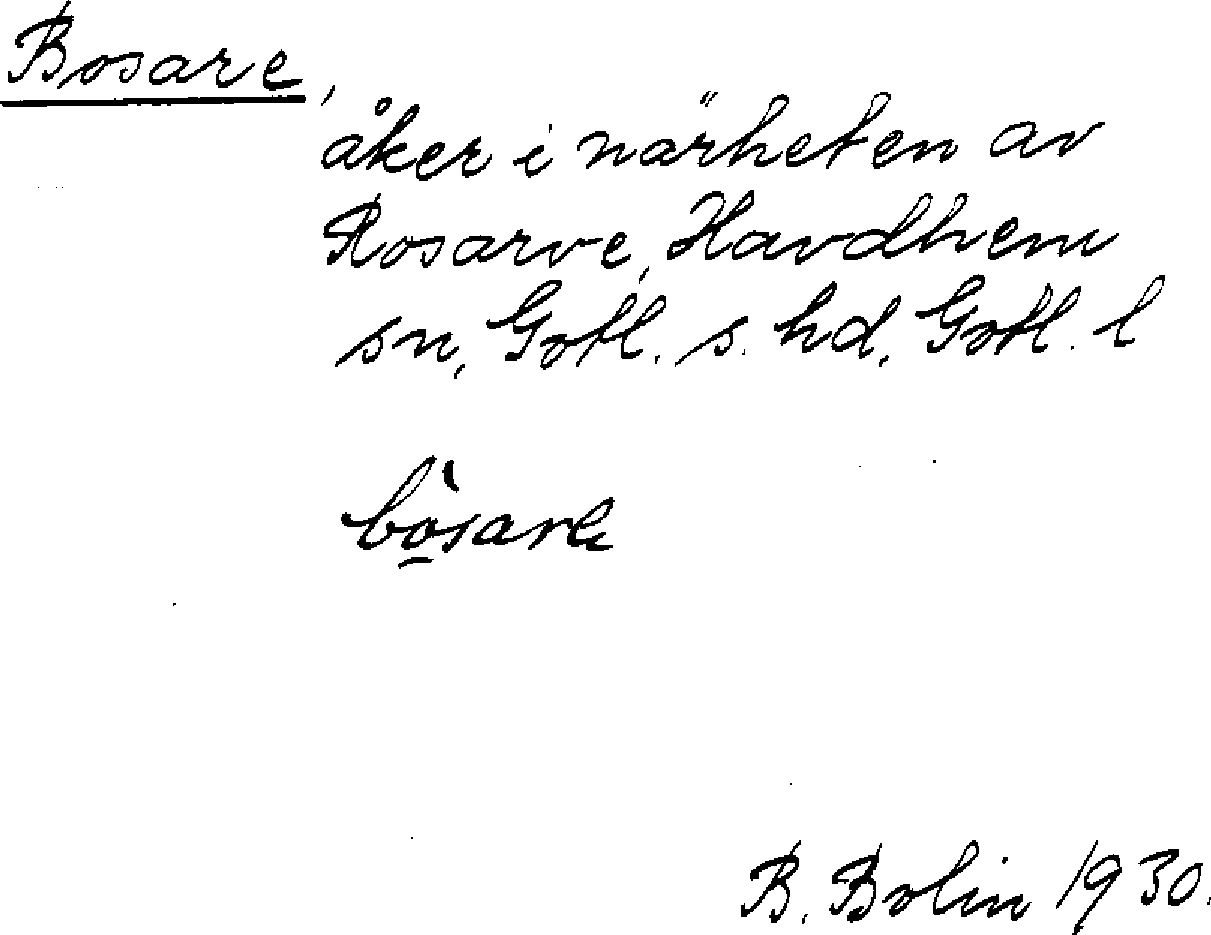 Bosare,
åker i närheten av
Rosarve, Havdhem
sn, Gotl. s. hd, Gotl. l
bò̲sare
B. Bolin 1930.